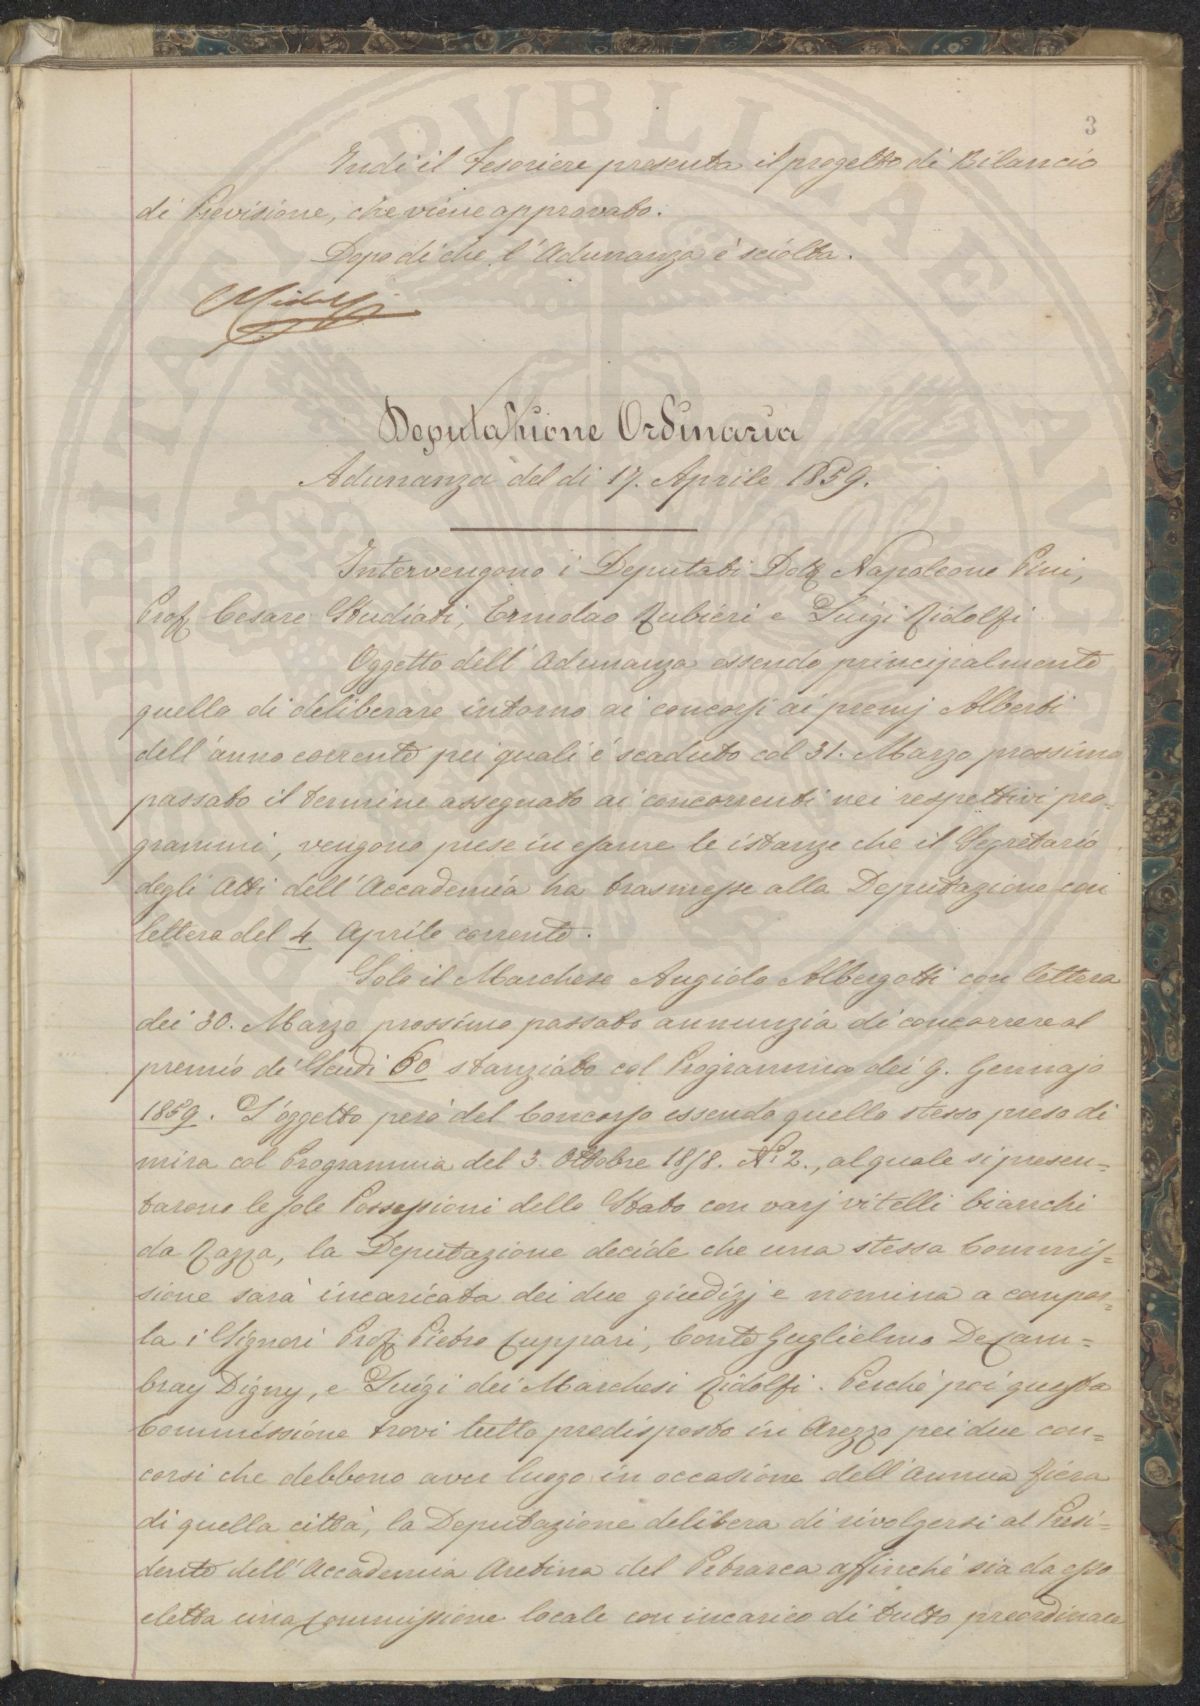 3
Indi il Tesoriere presenta il progetto di Bilancio
di Previsione, che viene approvato.
Dopo di che l'Adunanza è sciolta.
Deputazione Ordinaria
Adunanza del di 17. Aprile 1859.
Intervengono i Deputati Dott Napoleone Pini,
Prof Cesare Studiati, Ermolao Rubieri e Luigi Ridolfi
Oggetto dell'Adunanza essendo principalmente
quello di deliberare intorno ai concorsi ai premj Alberti
dell'anno corrente pei quali è scaduto col 31. Marzo prossimo
passato il termine assegnato ai concorrenti nei respettivi pro=
grammi, vengono prese in esame le istanze che il Segretario
degli Atti dell'Accademia ha trasmesse alla Deputazione con
lettera del 4 Aprile corrente.
Solo il Marchese Angiolo Albergotti con lettera
dei 30. Marzo prossimo passato annunzia di concorrere al
premio di Scudi 60 stanziato col Programma dei 9. Gennajo
1859. L'oggetto però del Concorso essendo quello stesso preso di
mira col Programma del 3 Ottobre 1858. N: 2., al quale si presen=
tarono le sole Possessioni dello Stato con varj vitelli bianchi
da Razza, la Deputazione decide che una stessa Commis=
sione sarà incaricata dei due giudizj e nomina a compor=
la i Signori Prof. Pietro Cuppari, Conte Guglielmo De Cam=
bray Digny, e Luigi dei Marchesi Ridolfi. Perchè poi questa
Commissione trovi tutto predisposto in Arezzo pei due con=
corsi che debbono aver luogo in occasione dell'annua fiera
di quella città, la Deputazione delibera di rivolgersi al Presi=
dente dell'Accademia Aretina del Petrarca affinchè sia da esso
eletta una Commissione locale con incarico di tutto preordinare